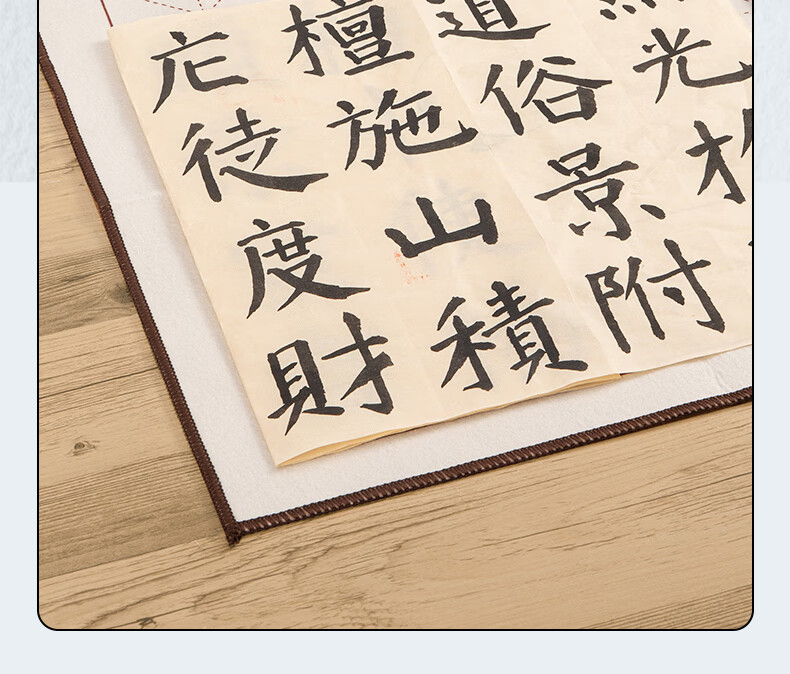 光
道俗景附
檀施山積
庀徒度財